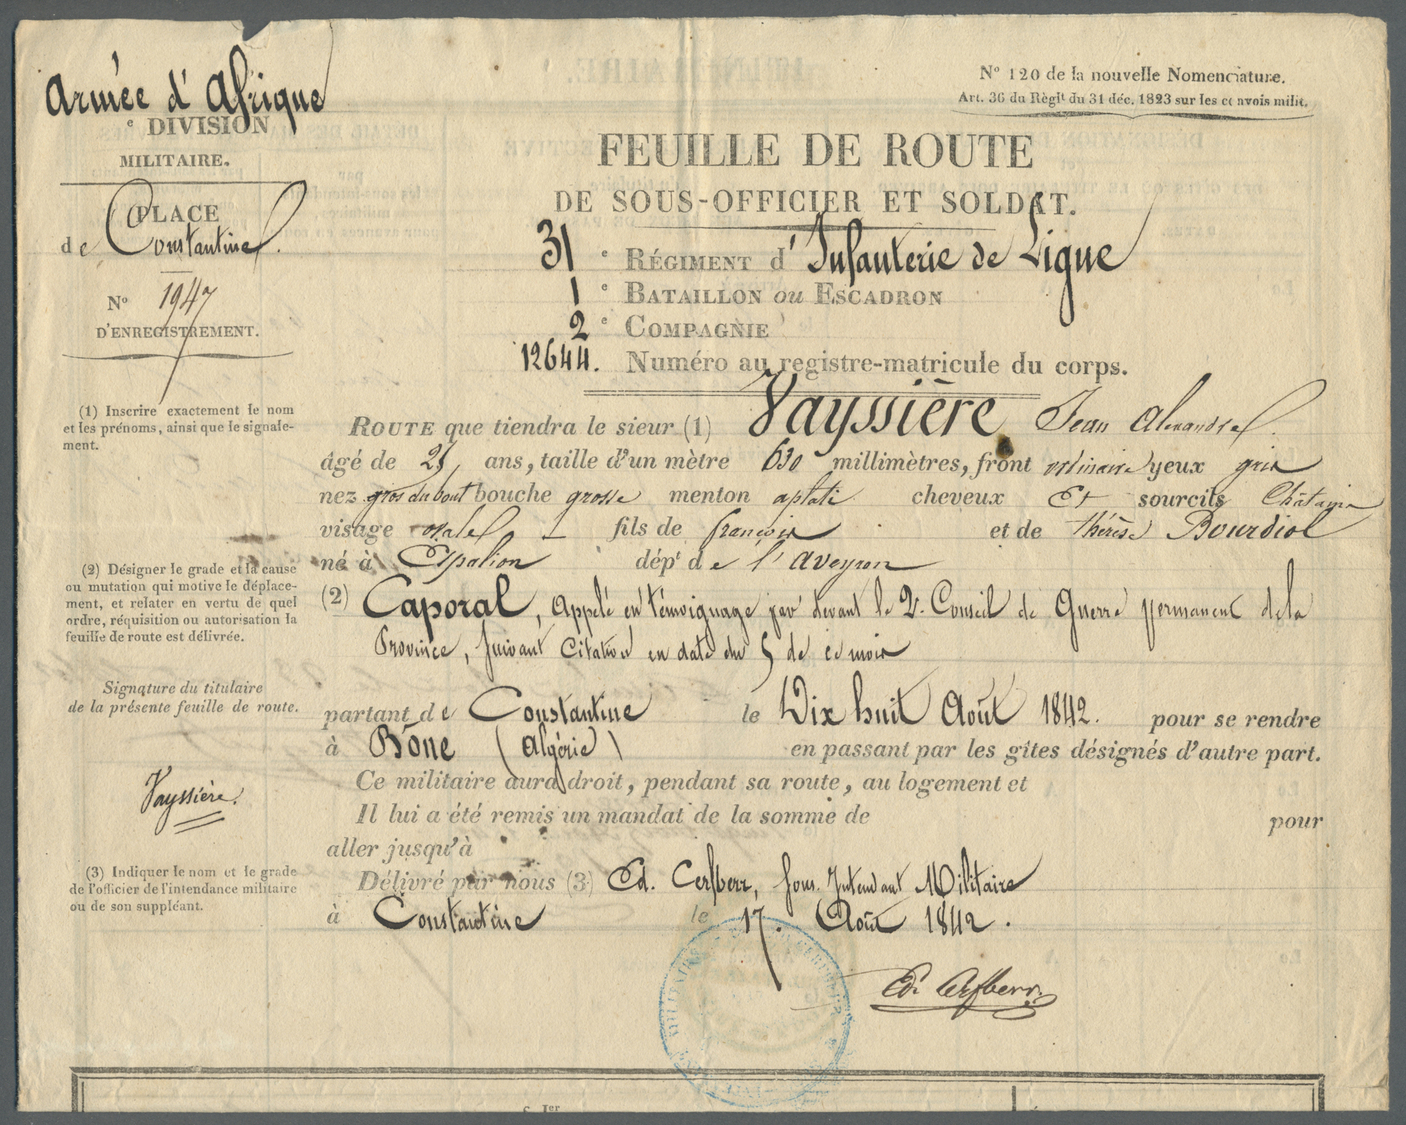 Armée d'Afrique
e DIVISION
MILITAIRE.
PLACE
de Constantine.
N° 1947
D'ENREGISTREMENT.
N° 120 de la nouvelle Nomenciature.
Art. 36 du Règlt du 31 déc. 1823 sur les convois milit.
FEUILLE DE ROUTE
DE SOUS-OFFICIER ET SOLDAT.
31 e RÉGIMENT d'Infanterie de Ligne
1 e BATAILLON ou ESCADRON
2 e COMPAGNIE
12644. Numéro au registre-matricule du corps.
(1) Inscrire exactement le nom
et les prénoms, ainsi que le signale-
ment.
ROUTE que tiendra le sieur (1) Vayssière Jean Alexandre
âgé de 25 ans, taille d'un mètre 630 millimètres, front ordinaire yeux gris
nez gros du bout bouche grosse menton aplati cheveux Et sourcils Châtains
visage ovale fils de françois et de thérèse Bourdiol
né à Espalion dépt de l'aveyron
(2) Désigner le grade et la cause
ou mutation qui motive le déplace-
ment, et relater en vertu de quel
ordre, réquisition ou autorisation la
feuille de route est délivrée.
(2) Caporal, appelé en témoignage par devant le 2e Conseil de Guerre permanent de la
Province, suivant Citation en date du 5 de ce mois
Signature du titulaire
de la présente feuille de route.
Vayssière.
partant de Constantine le Dix huit Août 1842. pour se rendre
à Bône (Algérie) en passant par les gîtes désignés d'autre part.
Ce militaire aura droit, pendant sa route, au logement et
Il lui a été remis un mandat de la somme de pour
aller jusqu'à
(3) Indiquer le nom et le grade
de l'officier de l'intendance militaire
ou de son suppléant.
Délivré par nous (3) Ed. Cerfberr, Sous. Intendant Militaire
à Constantine le 17. Août 1842.
Ed. Cerfberr.